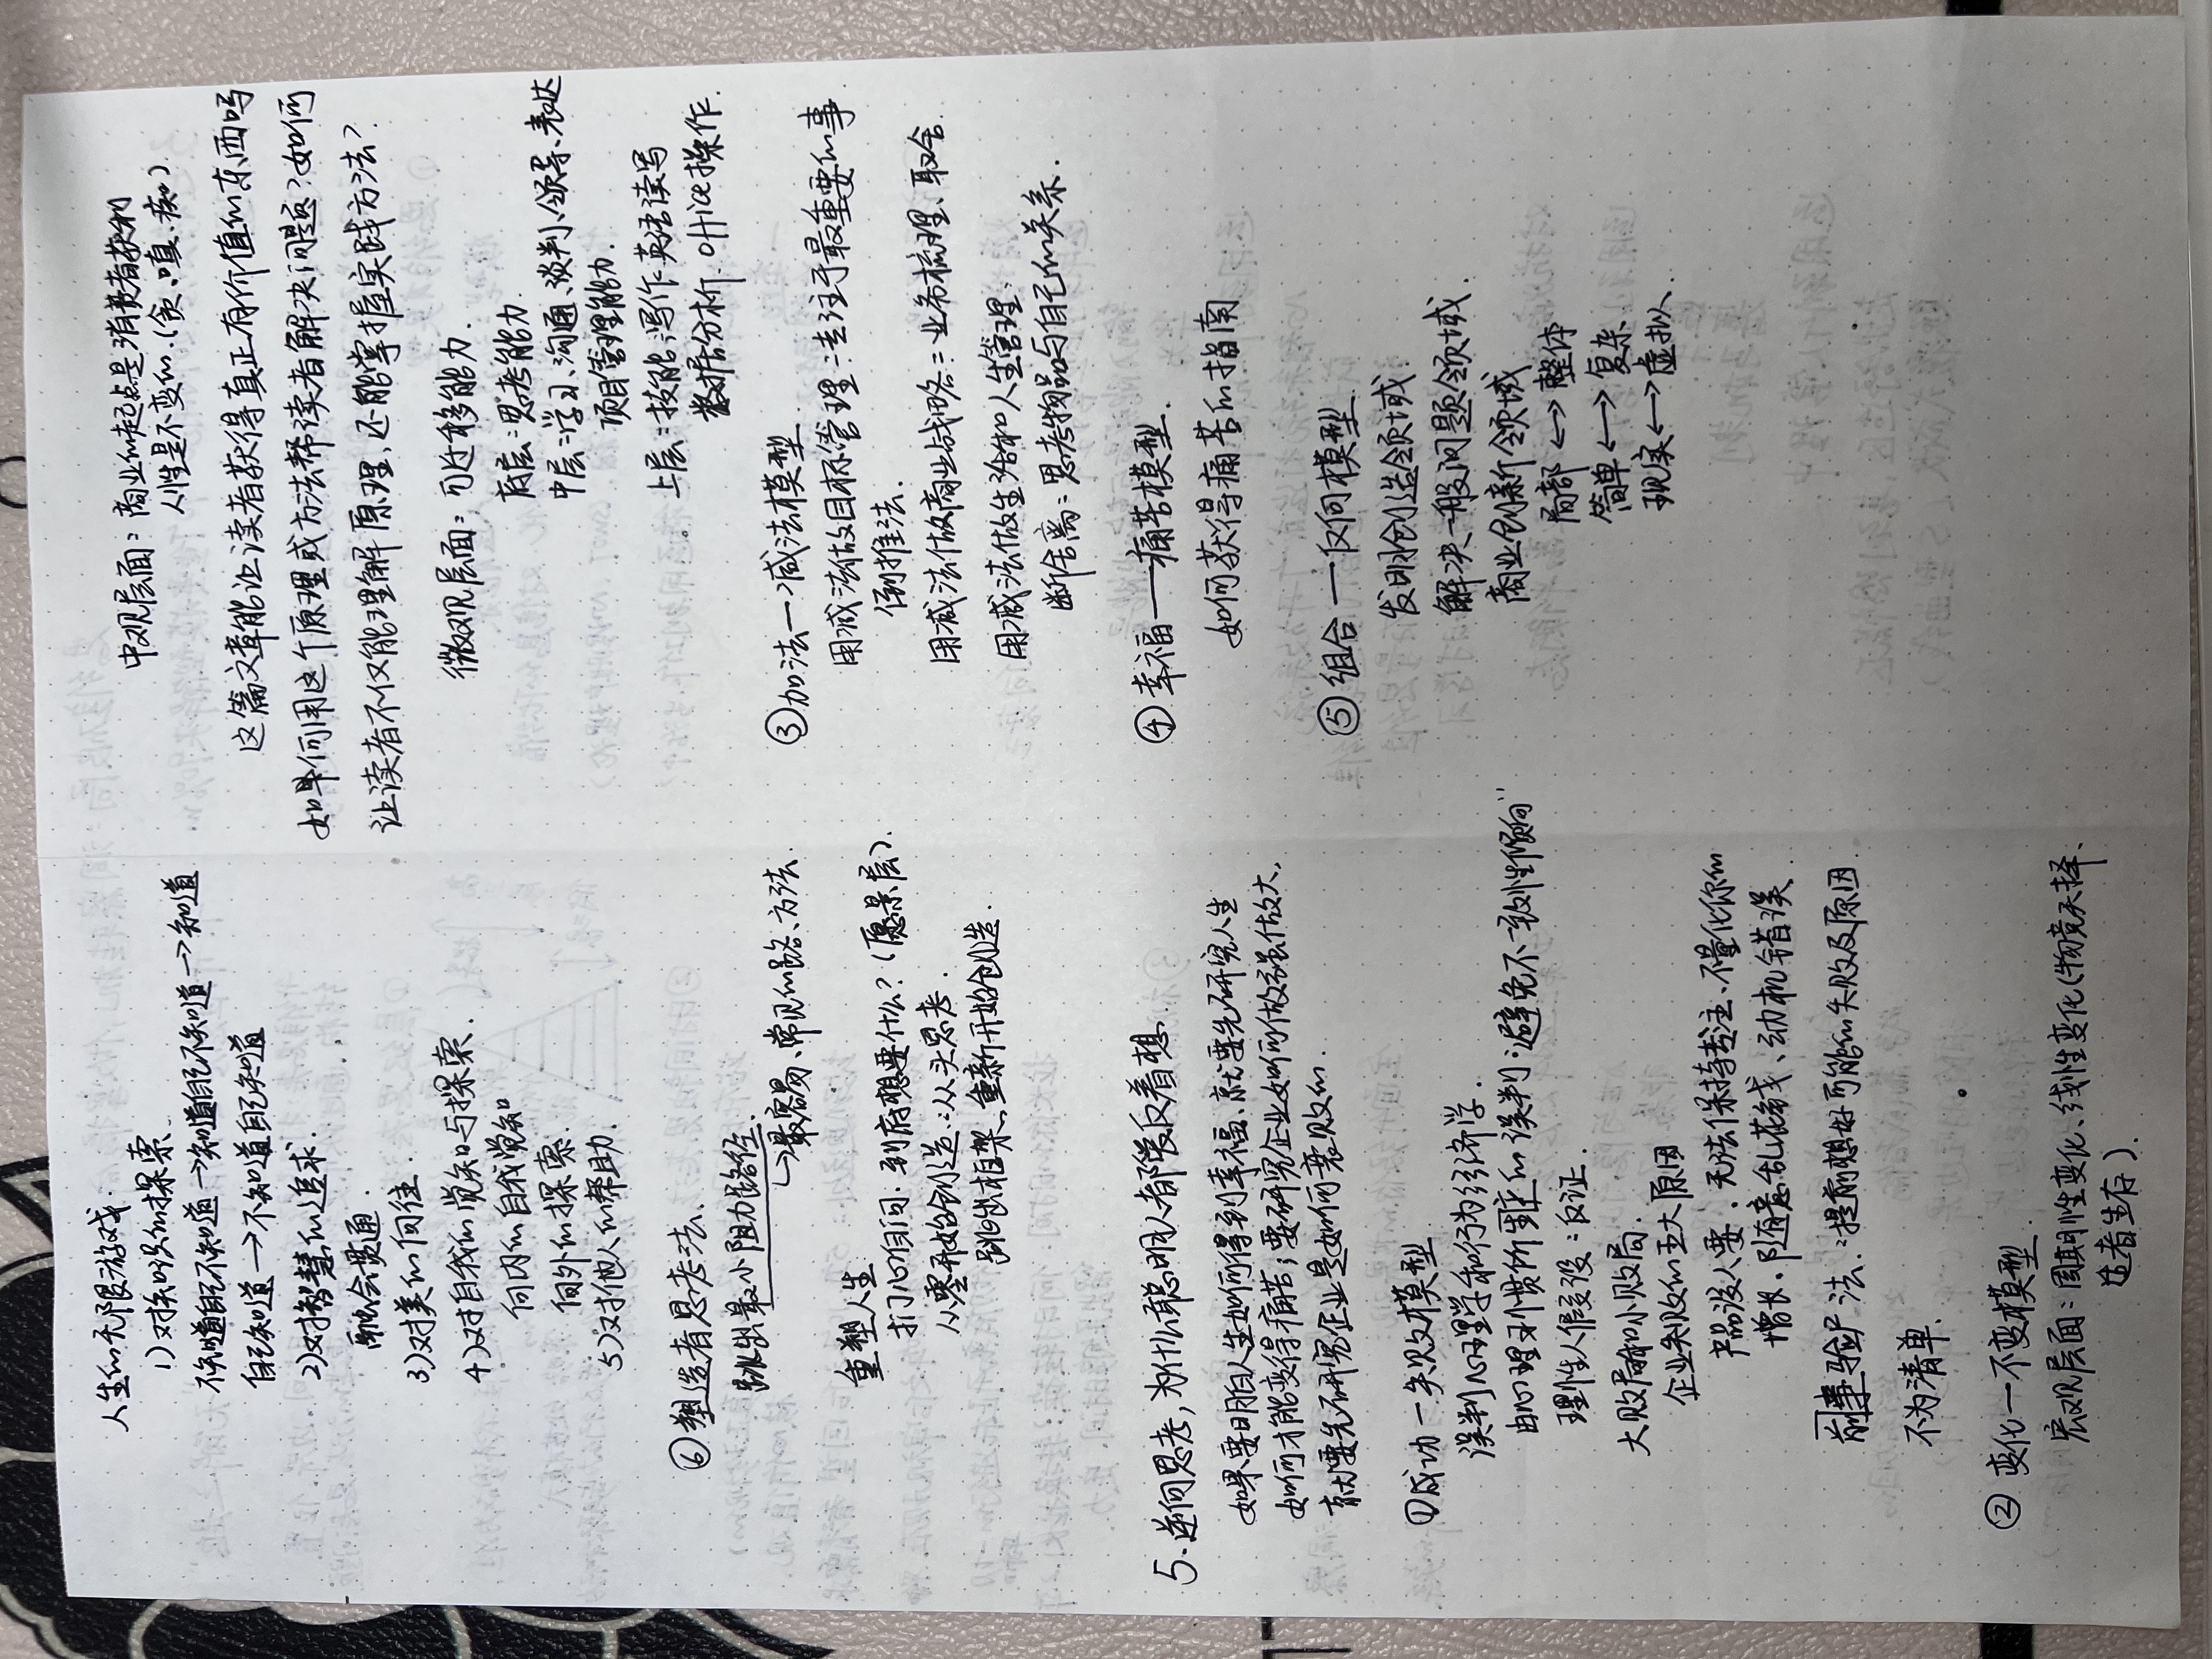 人生的无限游戏.
1)对知识的探索
不知道自己不知道→知道自己不知道→知道
自己知道→不知道自己知道
2)对智慧的追求.
融会贯通
3)对美的向往
4)对自我的觉知与探索.
向内的自我觉知
向外的探索.
5)对他人的帮助.
⑥塑造者思考法.
跳出最小阻力路径.
↳最容易、常见的路、方法
重塑人生
扪心自问:到底想要什么?(愿景层).
从零开始创造:从头思考.
跳出框架,重新开始创造.
5.逆向思考,为什么聪明人都爱反着想.
如果要明白人生如何得到幸福,就要先研究人生
如何才能变得痛苦;要研究企业如何做强做大,
就要先研究企业是如何衰败的.
①成功一失败模型
误判心理学和行为经济学.
由心理习惯所产生的误判:避免不一致性倾向"
理性人假设:反证.
大败局和小败局.
企业失败的五大原因
产品没人要.无法保持专注.不量化你的
增长.随意乱花钱、动机错误
前事验尸法:提前想好可能的失败及原因
不为清单.
②变化一不变模型
宏观层面:周期性变化、线性变化(物竞天择、
适者生存).
中观层面:商业的起点是消费者获利
人性是不变的.(贪.嗔.痴).
这篇文章能让读者获得真正有价值的东西吗
如果何用这个原理或方法帮读者解决问题?如何
让读者不仅能理解原理,还能掌握实践方法?
微观层面:可迁移能力.
底层:思考能力.
中层:学习、沟通、谈判、领导、表达
项目管理能力.
上层:技能:写作 英语读写
数据分析.office操作.
③加法一减法模型
用减法做目标管理:专注于最重要的事
倒推法.
用减法做商业战略:业务梳理、取舍
用减法做生活和人生管理:
断舍离:思考物品与自己的关系.
④幸福——痛苦模型.
如何获得痛苦的指南
⑤组合一反向模型.
发明创造领域.
解决一般问题领域.
商业创新领域
局部⟷整体
简单⟷复杂
现实⟷虚拟.